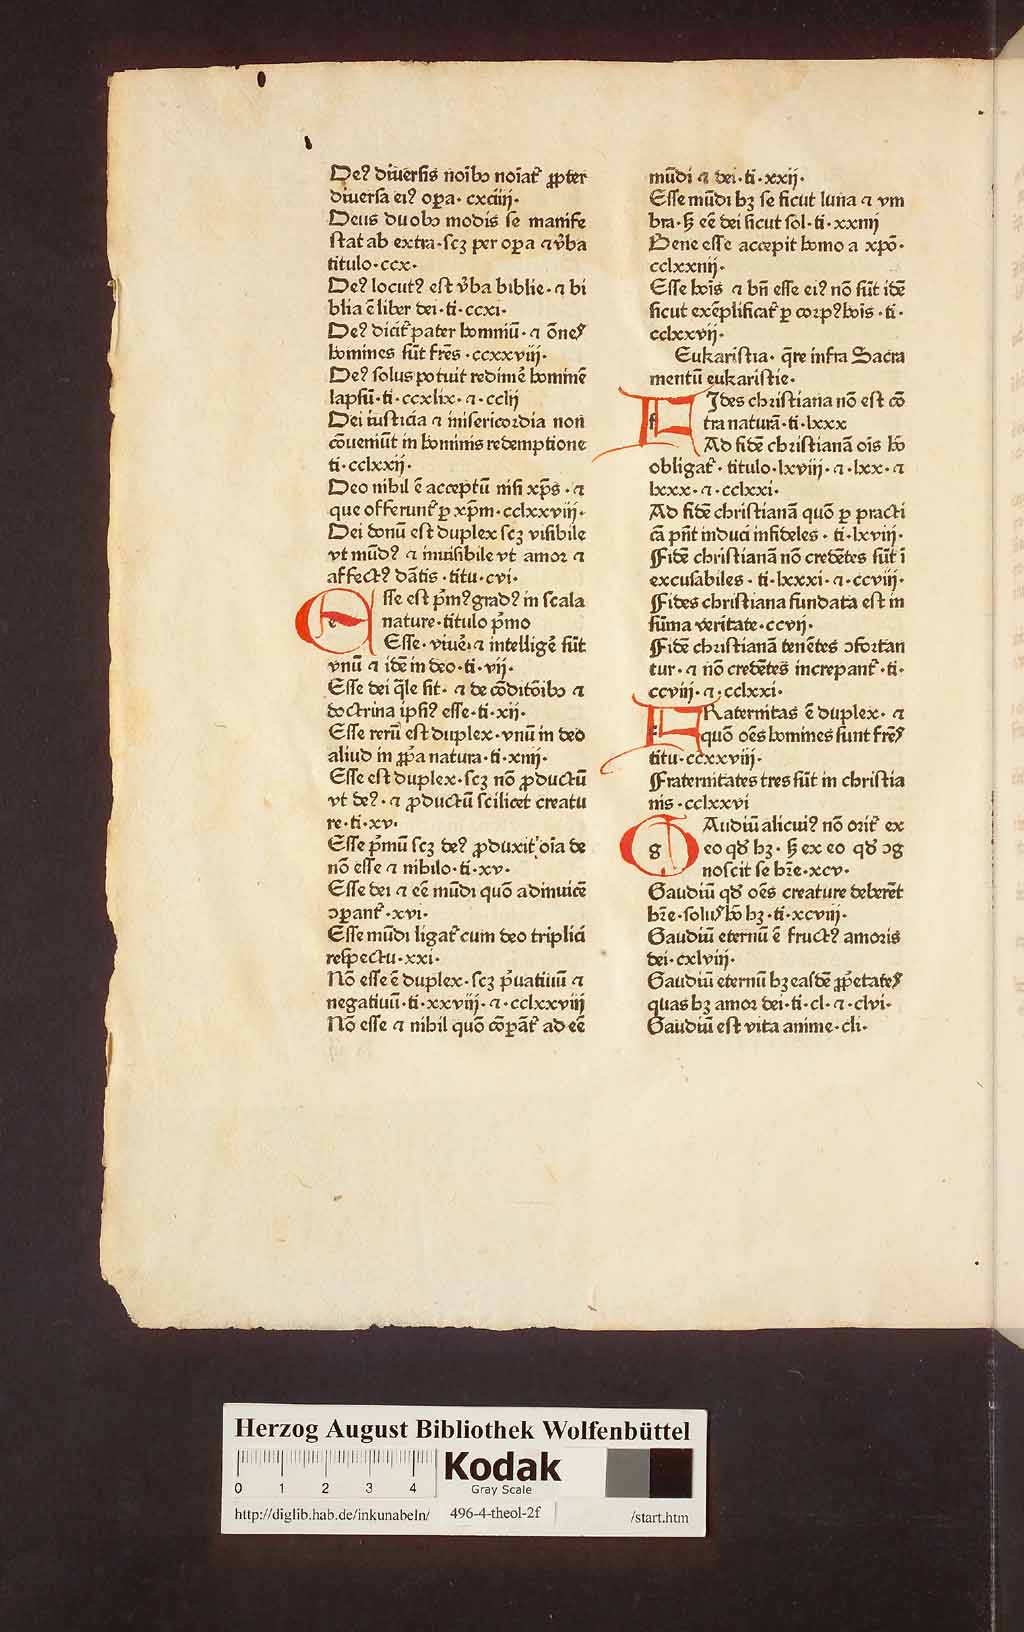 Deꝰ diuersis noībꝯ noīat᷑ ꝓpter
diuersa eiꝰ oꝑa · cxciiij ·
Deus duobꝯ modis se manife
stat ab extra · scꝫ per oꝑa ⁊ v̓ba
titulo · ccx ·
Deꝰ locutꝰ est v̓ba biblie · ⁊ bi
blia ē liber dei · ti · ccxi ·
Deꝰ dicit᷑ pater hominū · ⁊ ōnes
homines sūt fr̄es · ccxxviij ·
Deꝰ solus potuit redimē hominē
lapsū · ti · ccxlix · ⁊ · cclij
Dei iusticia ⁊ misericordia non
cōueniūt in hominis redemptione
ti · cclxxij ·
Deo nihil ē acceptū nisi xp̄s · ⁊
que offerunt᷑ ꝑ xp̄m · cclxxviij ·
Dei donū est duplex scꝫ visibile
vt mūdꝰ ⁊ inuisibile vt amor ⁊
affectꝰ dātis · titu · cvi ·
e sse est p̄mꝰ gradꝰ in scala
nature · titulo p̄mo
Esse · viuē · ⁊ intelligē sūt
vnū ⁊ idē in deo · ti · vij ·
Esse dei q̄le sit · ⁊ de cōditōibꝯ ⁊
doctrina ipsiꝰ esse · ti · xij ·
Esse rerū est duplex · vnū in deo
aliud in ꝓp̄a natura · ti · xiiij ·
Esse est duplex · scꝫ nō ꝓductū
vt deꝰ · ⁊ ꝓductū scilicet creatu
re · ti · xv ·
Esse p̄mū scꝫ deꝰ ꝓduxit oīa de
nō esse ⁊ nihilo · ti · xv ·
Esse dei ⁊ eē mūdi quō adinuicē
ꝯꝑant᷑ · xvi ·
Esse mūdi ligat᷑ cum deo triplici
respectu · xxi ·
Nō esse ē duplex · scꝫ p̄uatiuū ⁊
negatiuū · ti · xxviij · ⁊ · cclxxviij
Nō esse ⁊ nihil quō cōꝑāt᷑ ad eē
mūdi ⁊ dei · ti · xxij ·
Esse mūdi hꝫ se sicut luna ⁊ vm
bra · sꝫ eē dei sicut sol · ti · xxiiij
Bene esse accepit homo a xpō ·
cclxxiiij ·
Esse hoīs ⁊ bn̄ esse eiꝰ nō sūt idē
sicut exēplificat᷑ ꝑ corpꝰ hoīs · ti ·
cclxxvij ·
Eukaristia · q̄re infra Sacra
mentū eukaristie ·
f Ides christiana nō est cō
tra naturā · ti · lxxx
Ad fidē christianā oīs hō
obligat᷑ · titulo · lxviij · ⁊ · lxx · ⁊
lxxx · ⁊ · cclxxi ·
Ad fidē christianā quō ꝑ practi
cā pn̄t induci infideles · ti · lxviij ·
Fidē christianā nō credētes sūt ī
excusabiles · ti · lxxxi · ⁊ · ccviij ·
Fides christiana fundata est in
sūma veritate · ccvij ·
Fidē christianā tenētes ꝯfortan
tur · ⁊ nō credētes increpant᷑ · ti ·
ccviij · ⁊ · cclxxi ·
f Raternitas ē duplex · ⁊
quō oēs homines sunt fr̄es
titu · ccxxviij ·
Fraternitates tres sūt in christia
nis · cclxxvi
g Audiū alicuiꝰ nō orit᷑ ex
eo qď hꝫ · sꝫ ex eo qď ꝯg
noscit se hr̄e · xcv ·
Gaudiū qď oēs creature deberēt
hr̄e · solus hō hꝫ · ti · xcviij ·
Gaudiū eternū ē fructꝰ amoris
dei · cxlviij ·
Gaudiū eternū hꝫ easdē ꝓp̄etates
quas hꝫ amor dei · ti · cl · ⁊ · clvi ·
Gaudiū est vita anime · cli ·
Herzog August Bibliothek Wolfenbüttel
0 1 2 3 4
Kodak
Gray Scale
http://diglib.hab.de/inkunabeln/ 496-4-theol-2f /start.htm